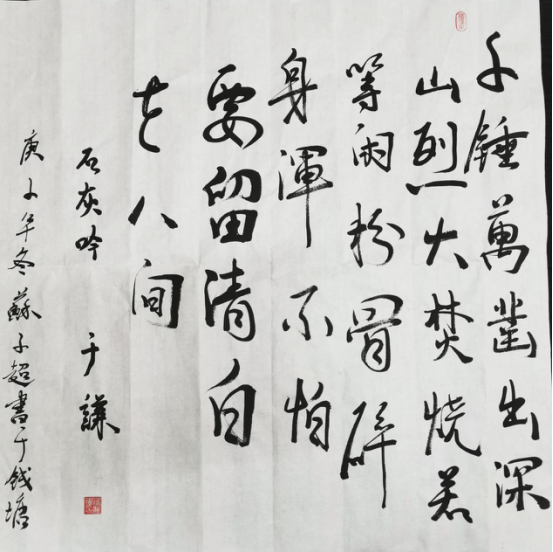 千錘萬凿出深
山烈火焚燒若
等閑粉骨碎
身渾不怕
要留清白
在人間
石灰吟 于謙
庚子年冬蘇子超書于錢塘